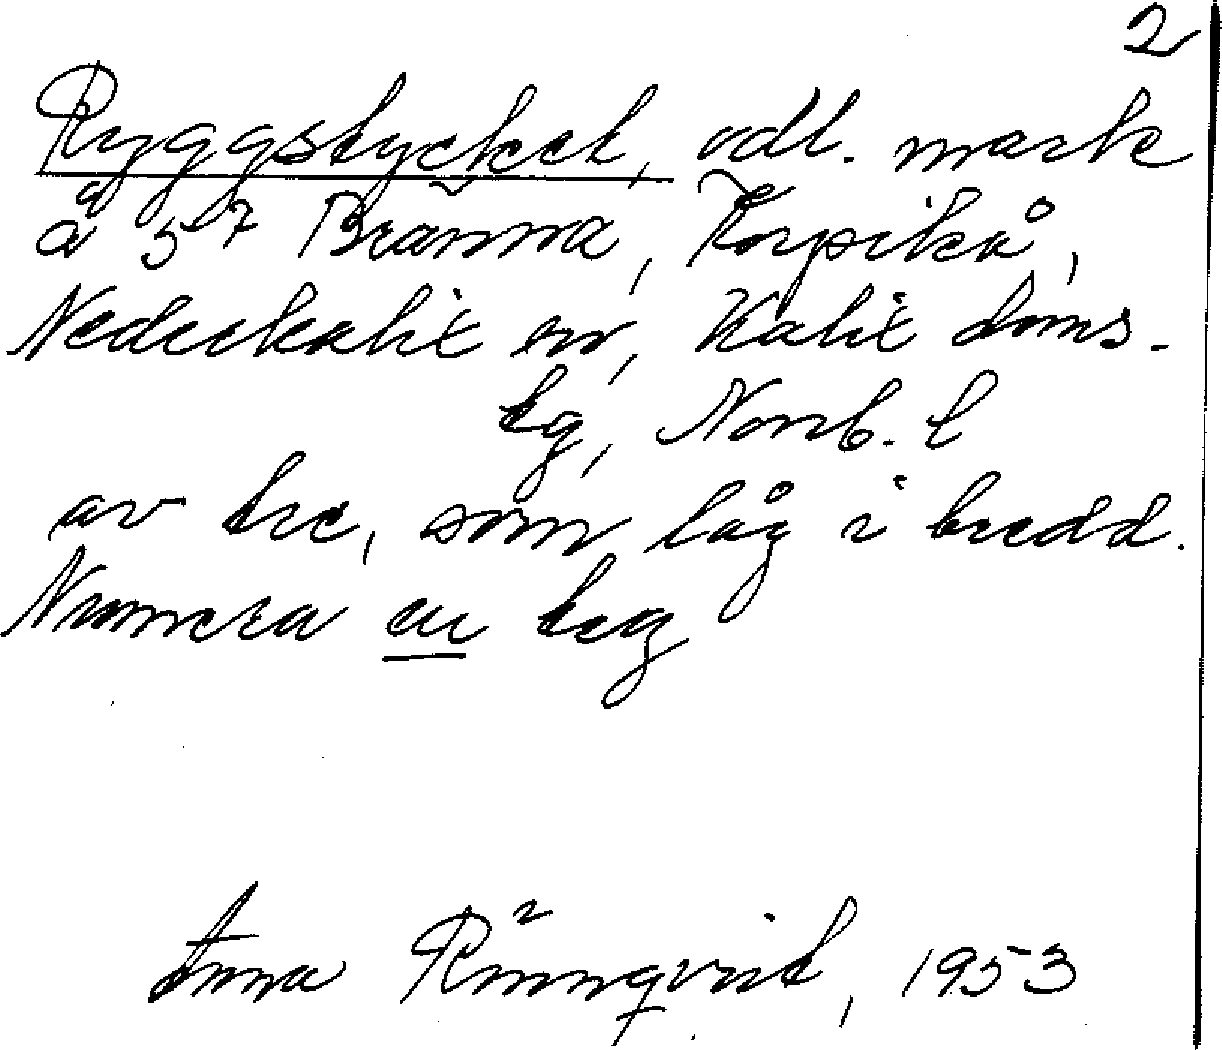 2
Ryggstycket, odl. mark
å 5^7 Bränna, Korpikå,
Nederkalix sn, Kalix doms-
tg, Norrb. l
av tre, som låg i bredd.
Numera en teg
Anna Rönnqvist, 1953